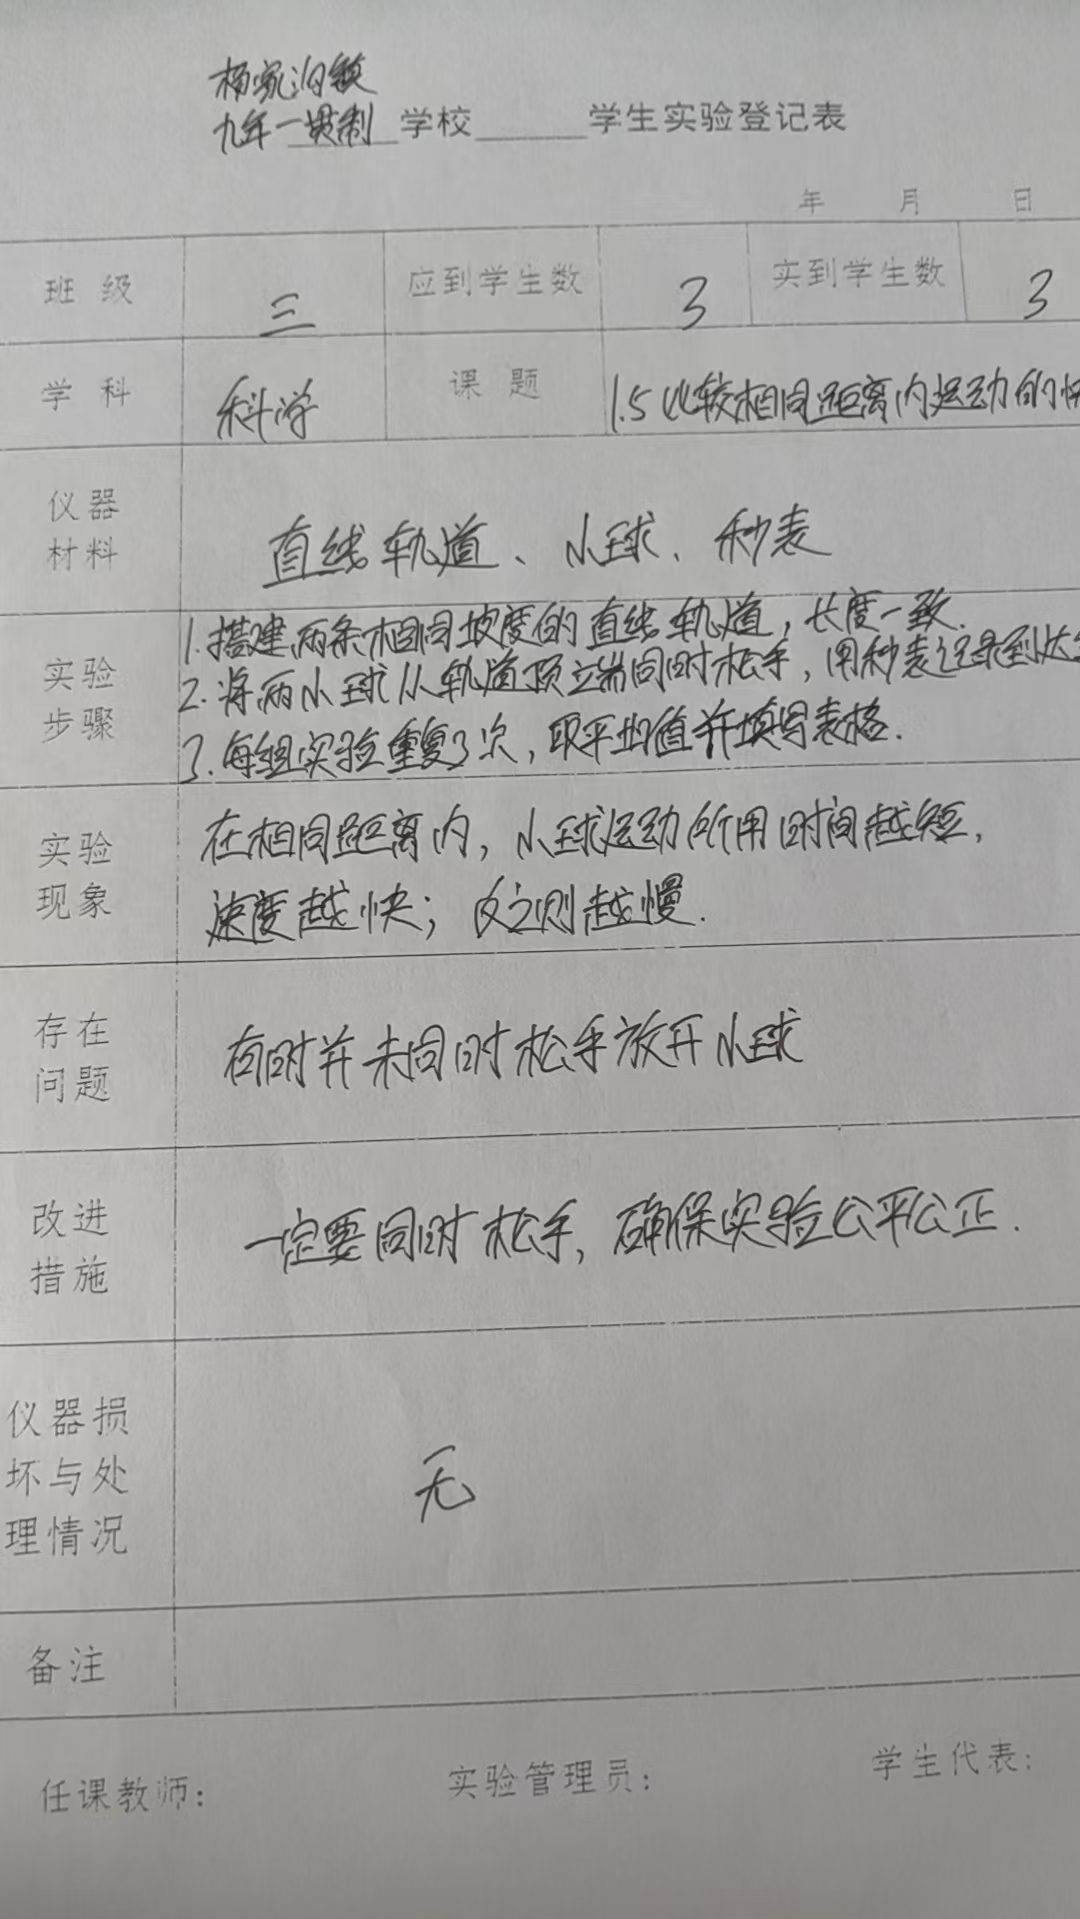 杨家泊镇
九年一贯制学校 学生实验登记表
年 月 日
班级 三 应到学生数 3 实到学生数 3
学科 科学 课题 1.5比较相同距离内运动的快
仪器材料 直线轨道、小球、秒表
实验步骤 1.搭建两条相同坡度的直线轨道,长度一致.
2.将两小球从轨道顶端同时松手,用秒表记录到达
3.每组实验重复3次,取平均值并填写表格.
实验现象 在相同距离内,小球运动所用时间越短,
速度越快;反之则越慢.
存在问题 有时并未同时松手放开小球
改进措施 一定要同时松手,确保实验公平公正.
仪器损坏与处理情况 无
备注
任课教师: 实验管理员: 学生代表: